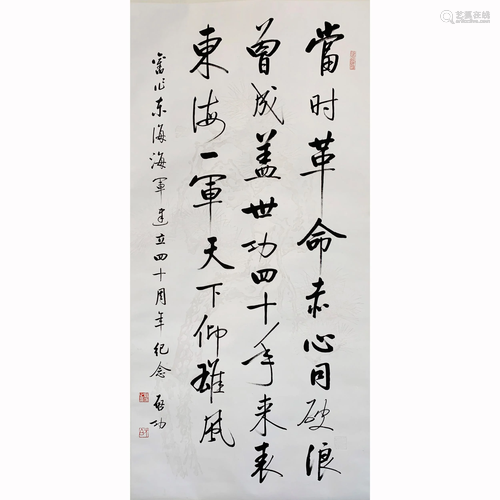 當时革命赤心同破浪
曾成盖世功四十年来表
東海一軍天下仰雄風
舊作东海海軍建立四十周年纪念 启功
艺狐在线